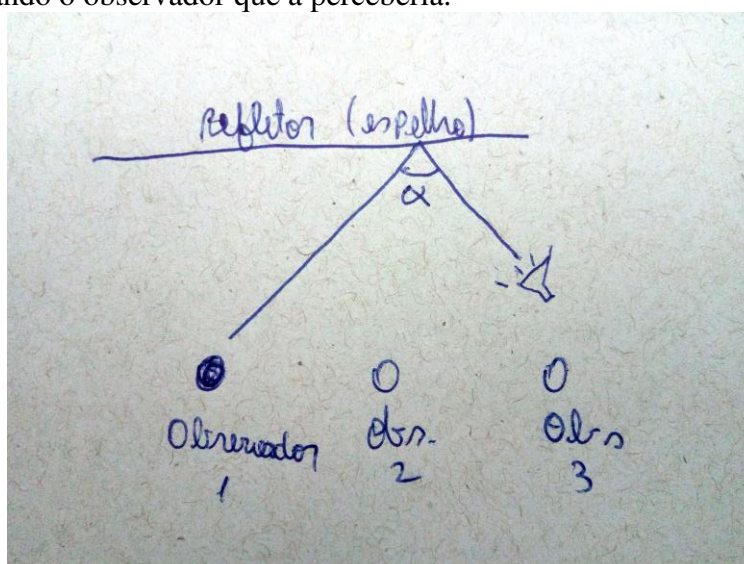 ando o observador que a perceberia.
Refletor (espelho)
α
Observador
1
Obs.
2
Obs
3